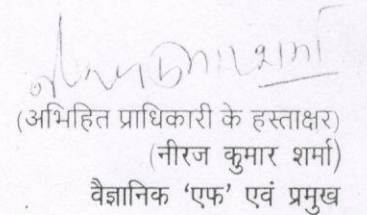 शर्मा
(अभिहित प्राधिकारी के हस्ताक्षर)
(नीरज कुमार शर्मा)
वैज्ञानिक ‘एफ’ एवं प्रमुख